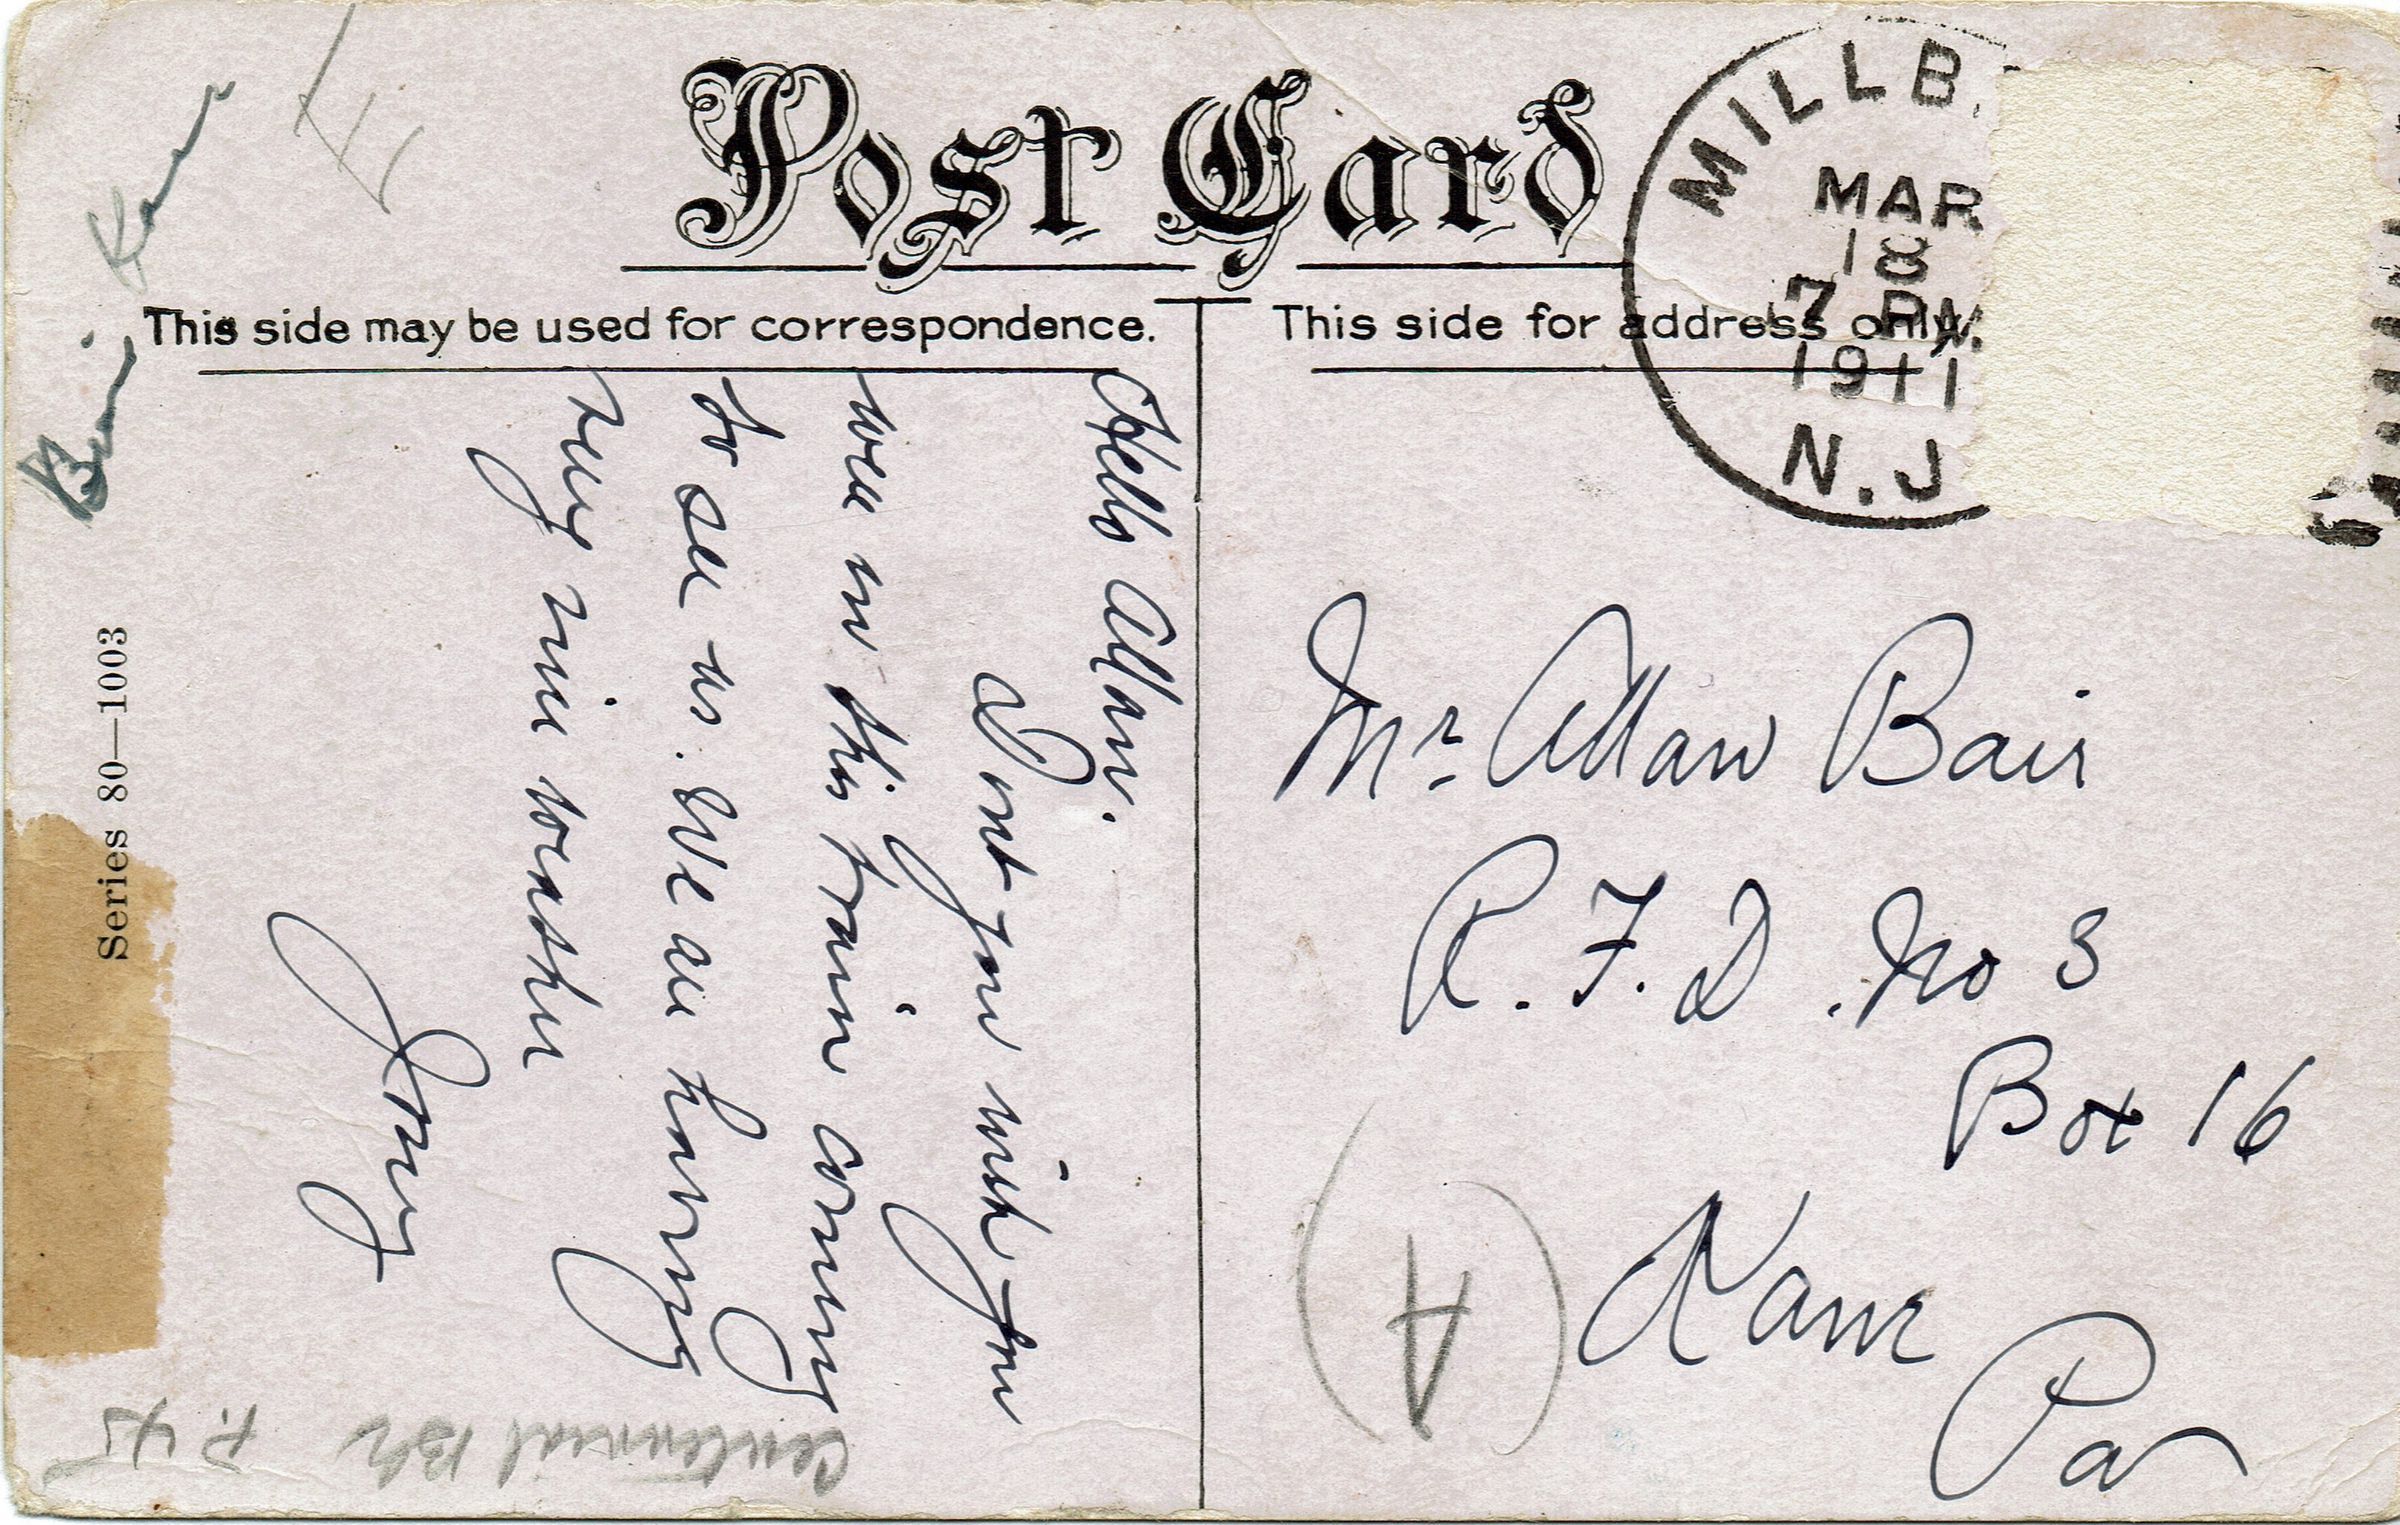 Post Card
This side may be used for correspondence.
This side for address only.
MILLB
MAR
18
7 PM
1911
N.J
Hello Allan.
Dont you wish you
were in this train coming
to see us. We are having
very nice weather
Jenny
Mr Allan Bair
R. F. D. No 3
Box 16
Kane
Pa
Series 80—1003
Kane
E
(A)
Centennial Bk
P. 45